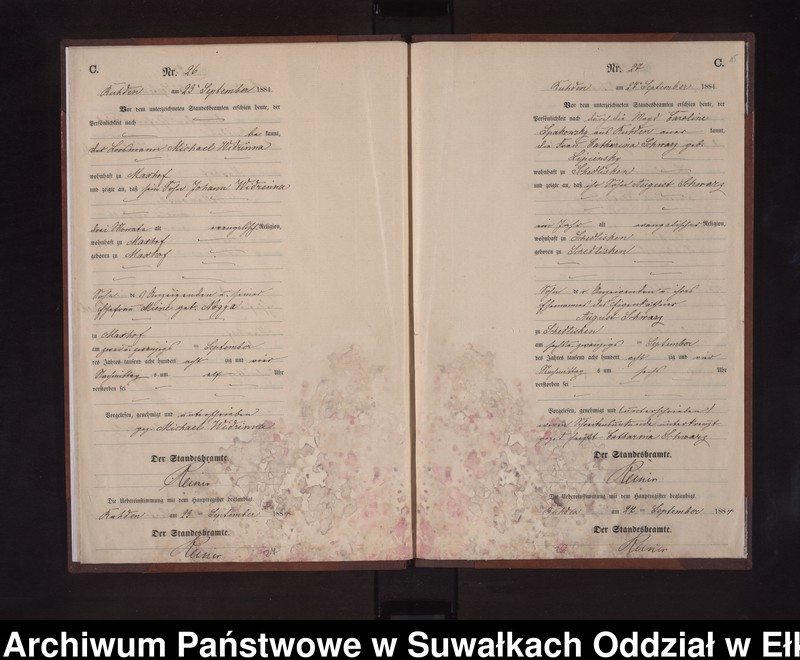 C.
Nr. 26
Rahden am 23t September 1884.
Vor dem unterzeichneten Standesbeamten erschien heute, der
Persönlichkeit nach
be kannt,
der Losmann Michael Widrinna
wohnhaft zu Maxhof
und zeigte an, daß sein Sohn Johann Widrinna
drei Monate alt evangelischer Religion,
wohnhaft zu Maxhof
geboren zu Maxhof
Sohn des Anzeigenden u. seiner
Ehefrau Mine geb. Nogga
zu Maxhof
am September
des Jahres tausend acht hundert acht zig und vier
Nachmittag s um elf Uhr
verstorben sei
Vorgelesen, genehmigt und unterschrieben
gez. Michael Widrinna
Der Standesbeamte.
Reinir
Die Uebereinstimmung mit dem Hauptregister beglaubigt.
Rahden am 23 ten September 1884
Der Standesbeamte.
Reinir
C.
Nr. 27
Ruhden am 27t September 1884.
Vor dem unterzeichneten Standesbeamten erschien heute, der
Persönlichkeit nach durch die Magd Caroline
aus Ruhden aner kannt,
die Frau Catharina Schwarz geb.
Lipiensky
wohnhaft zu Schedlisken
und zeigte an, daß ihr Sohn August Schwarz
ein Jahr alt evangelischer Religion,
wohnhaft zu Schedlisken
geboren zu Schedlisken
Sohn der Anzeigenden u. ihres
Ehemannes des Eigenkäthner
August Schwarz
zu Schedlisken
am sechsundzwanzigsten September
des Jahres tausend acht hundert acht zig und vier
Nachmittag s um sechs Uhr
verstorben sei
Vorgelesen, genehmigt und (unterschrieben)
wegen Schreibensunkunde unterkreuzt
Catharina Schwarz
Der Standesbeamte.
Reinir
Die Uebereinstimmung mit dem Hauptregister beglaubigt.
Ruhden am 27 ten September 1884
Der Standesbeamte.
Reinir
Archiwum Państwowe w Suwałkach Oddział w Ełk